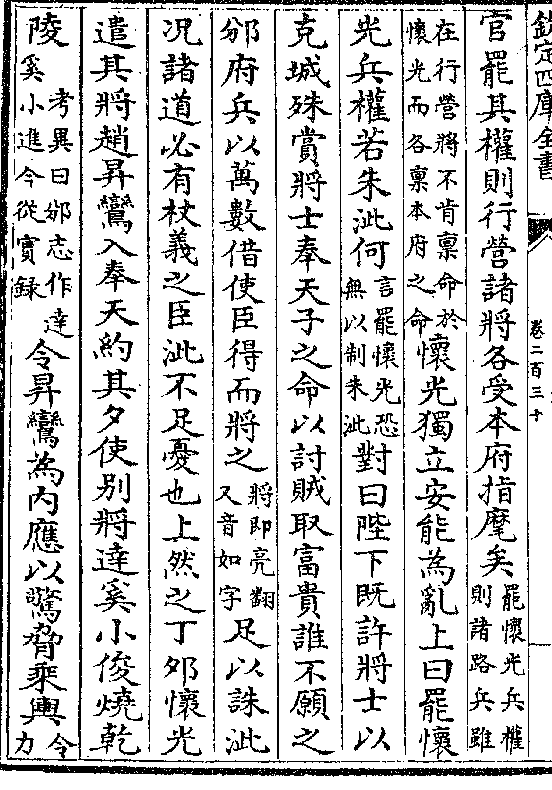 欽定四庫全書
卷二百三十
官罷其權則行營諸將各受本府指麾矣罷懷光兵權則諸路兵雖
在行營將不肯稟命於懷光而各稟本府之命懷光獨立安能為亂上曰罷懷
光兵權若朱泚何言罷懷光恐無以制朱泚對曰陛下既許將士以
克城殊賞將士奉天子之命以討賊取富貴誰不願之
邠府兵以萬數借使臣得而將之將即亮翻又音如字足以誅泚
况諸道必有杖義之臣泚不足憂也上然之丁夘懷光
遣其將趙昇鸞入奉天約其夕使別將達奚小俊燒乾
陵考異曰邠志作達奚小進今從實録令昇鸞為内應以驚脅乘輿令力